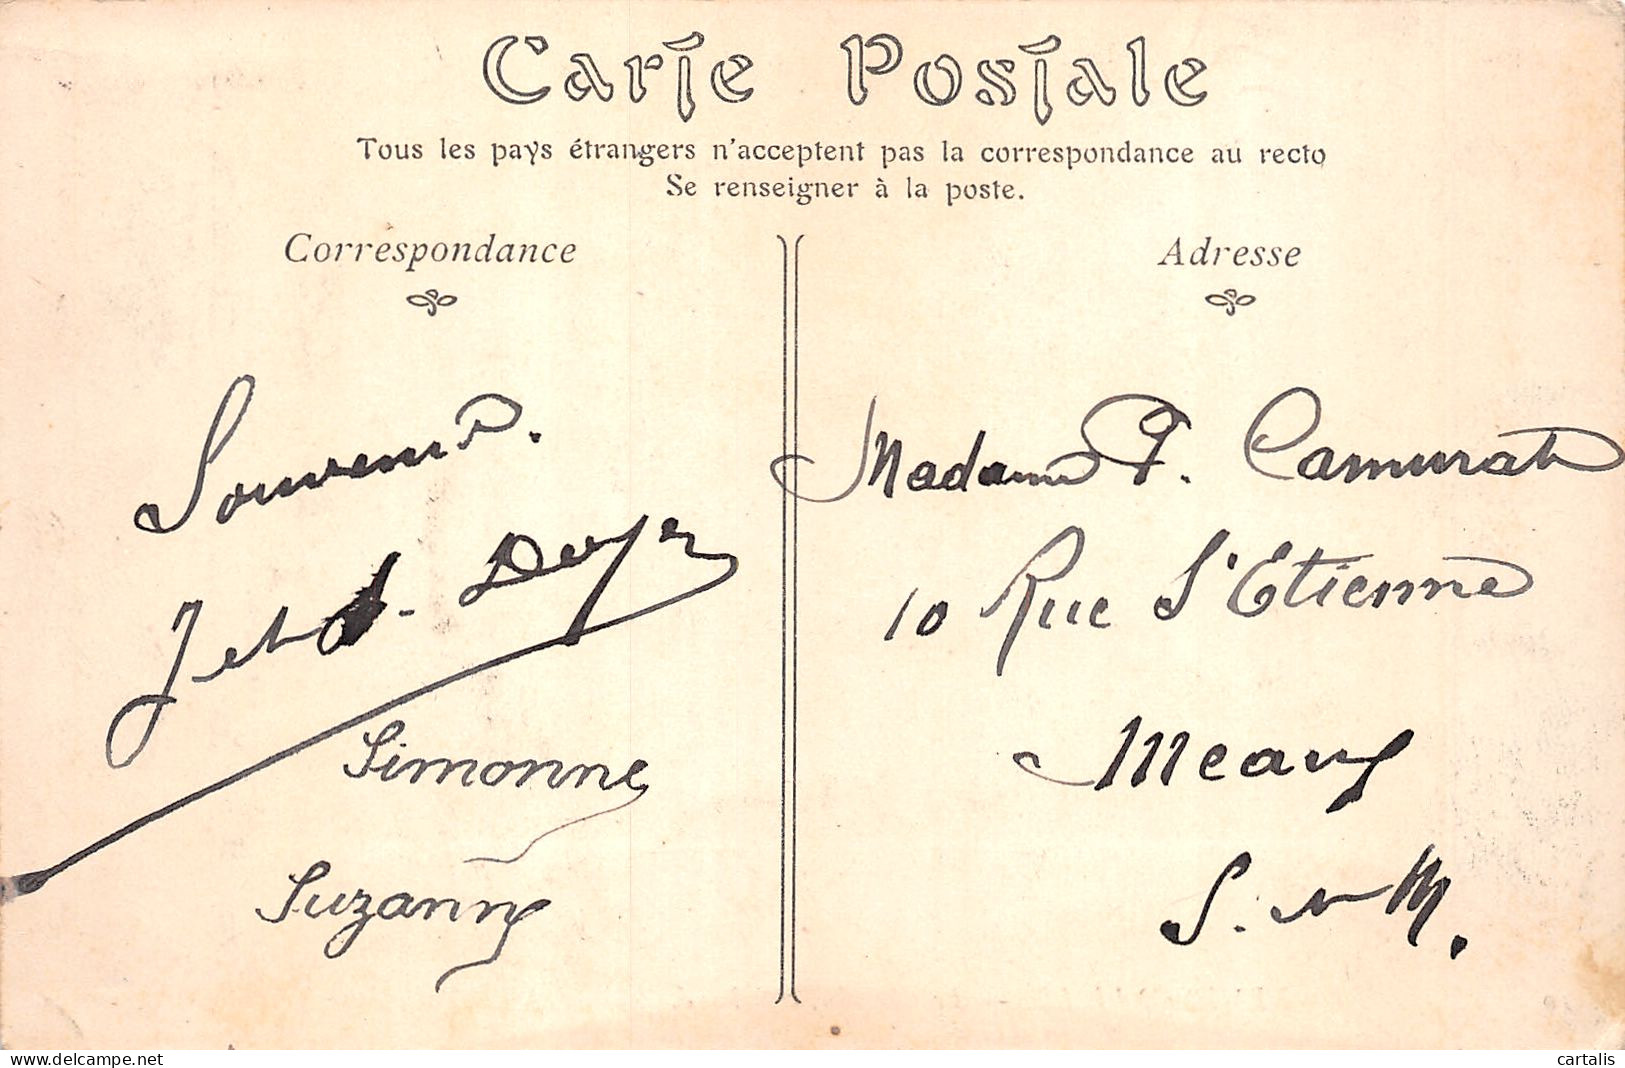 Carte Postale
Tous les pays étrangers n'acceptent pas la correspondance au recto
Se renseigner à la poste.
Correspondance
Adresse
Souvenir.
J et
Simonne
Suzanne
Madame P. Camurat
10 Rue St Etienne
Meaux
S. et M.
cartalis